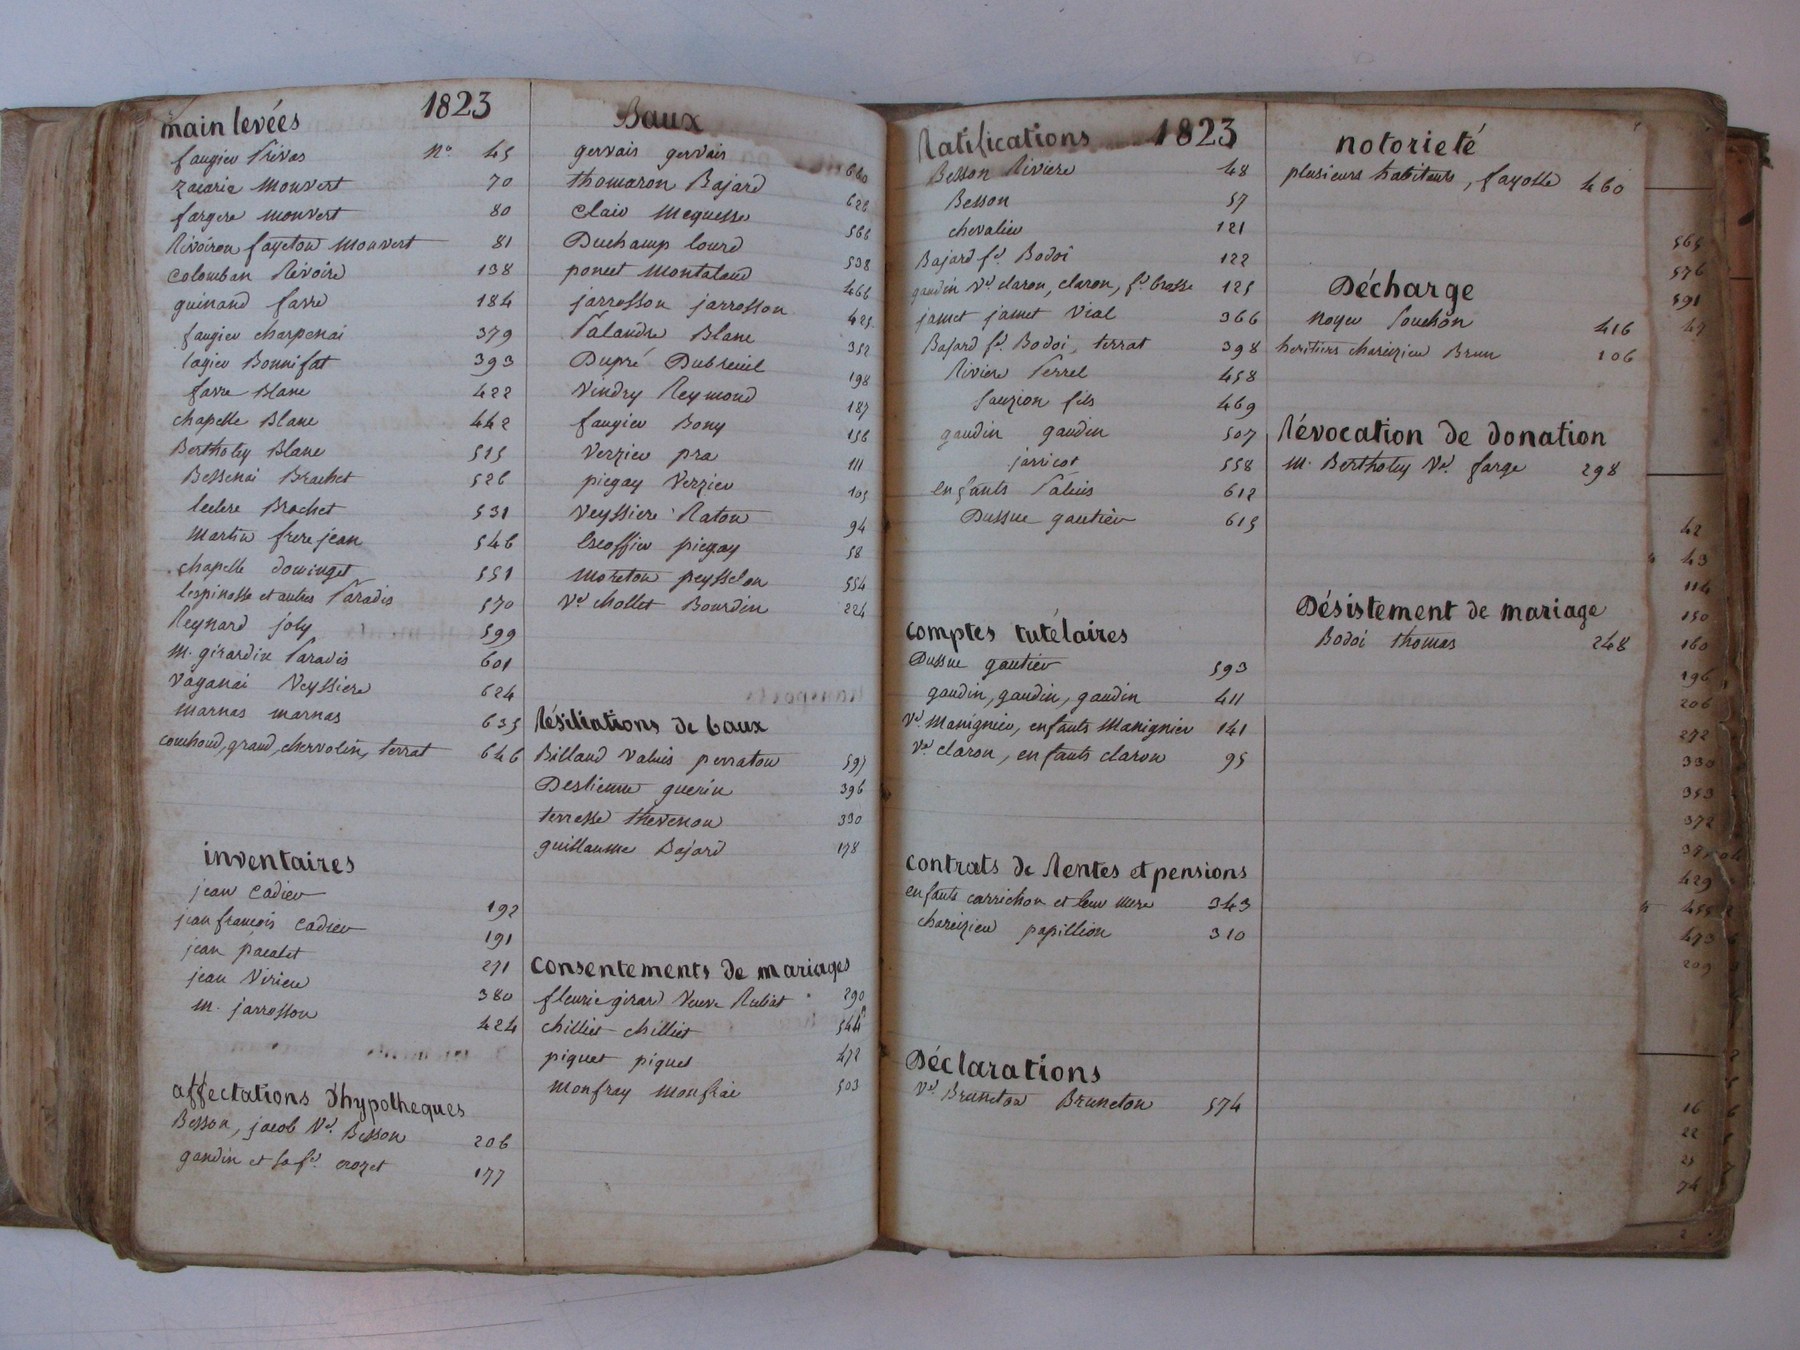 1823
main levées
faugier Privas N° 45
zacarie Monvert 70
fargere monvert 80
Rivoiron fayeton Monvert 81
Colomban Rivoire 138
guinand favre 184
faugier charpenai 379
lagier Bonnifat 393
favre Blanc 422
chapelle Blanc 442
Bertholey Blanc 515
Bessenai Brachet 526
leclerc Brochet 531
Martin frere jean 546
chapelle dominget 551
lespinasse et autres Paradis 570
Reynard joly 599
M. girardin Paradis 601
Vaganai Veyssiere 624
marnas marnas 635
couchoud, grand, chervolin, terrat 646
inventaires
jean Cadier 192
jean francois Cadier 191
jean pacalet 271
jean Virieu 380
M. jarrosson 424
affectations d'hypotheques
Besson, jacob Ve. Besson 206
gandin et sa fe. crozet 177
Baux
gervais gervais 660
thomaron Bajard 626
Clair Meguesse 566
Duchamp lourd 538
poncet Montaland 466
jarrosson jarrosson 425
Palandre Blanc 352
Dupré Dubreuil 198
Vindry Reymond 187
faugier Bony 156
Verzier pra 111
piegay Verzier 105
Veyssiere Raton 94
Escoffier piegay 58
Moreton peysselon 554
Ve chollet Bourdin 224
Résiliations de baux
Billand Valuis perraton 595
Deslienne guerin 396
terrasse thevenon 330
guillaume Bajard 178
Consentements de mariages
fleurie girard Veuve Rubiat 290
chilliet chilliet 544
piquet piquet 472
Monfray Monfrai 503
Ratifications 1823
Besson Riviere 48
Besson 57
chevalier 121
Bajard fe. Bodoi 122
gaudin Ve. claron, claron, fe. brosse 125
jamet jamet Vial 366
Bajard fe. Bodoi, terrat 398
Riviere Perrel 458
Sauzion fils 469
gaudin gaudin 507
jarricot 558
enfants Paluis 612
Dussuc gautier 615
Comptes tutélaires
Dussuc gautier 593
gaudin, gaudin, gaudin 411
Ve. Manignier, enfants Manignier 141
Ve. claron, enfants claron 95
Contrats de Rentes et pensions
enfants carrichon et leur mere 343
chareizieu papillion 310
Déclarations
Ve. Bruneton Bruneton 574
notorieté
plusieurs habitants, fayolle 460
Décharge
Noyer Souchon 416
heritiers chareizieu Brun 106
Révocation de donation
M. Bertholey Ve. farge 298
Désistement de mariage
Bodoi thomas 248
565
576
591
47
42
43
114
150
160
196
206
272
330
353
372
429
455
473
209
16
22
25
74